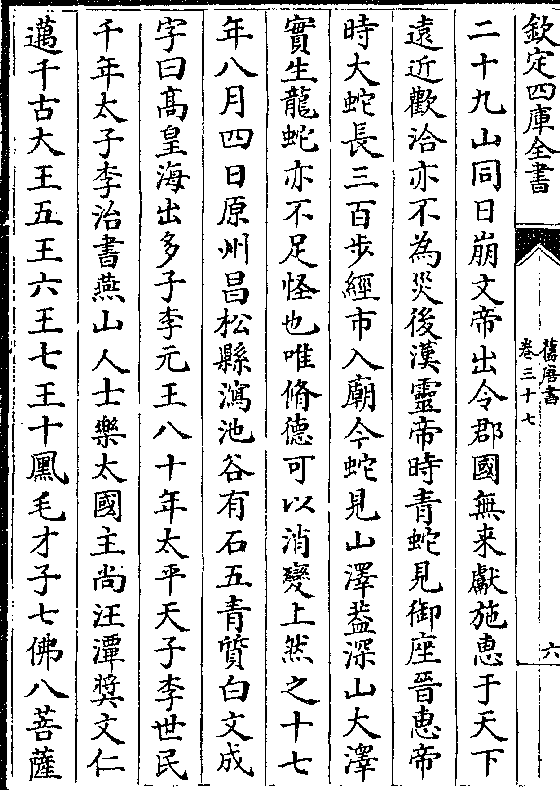 欽定四庫全書
舊唐書
卷三十七
六
二十九山同日崩文帝出令郡國無來獻施惠于天下
遠近歡洽亦不為災後漢靈帝時青蛇見御座晉惠帝
時大蛇長三百步經市入廟今蛇見山澤葢深山大澤
實生龍蛇亦不足怪也唯脩德可以消變上然之十七
年八月四日原州昌松縣鴻池谷有石五青質白文成
字曰髙皇海出多子李元王八十年太平天子李世民
千年太子李治書燕山人士樂太國主尚汪潭奬文仁
邁千古大王五王六王七王十鳳毛才子七佛八菩薩